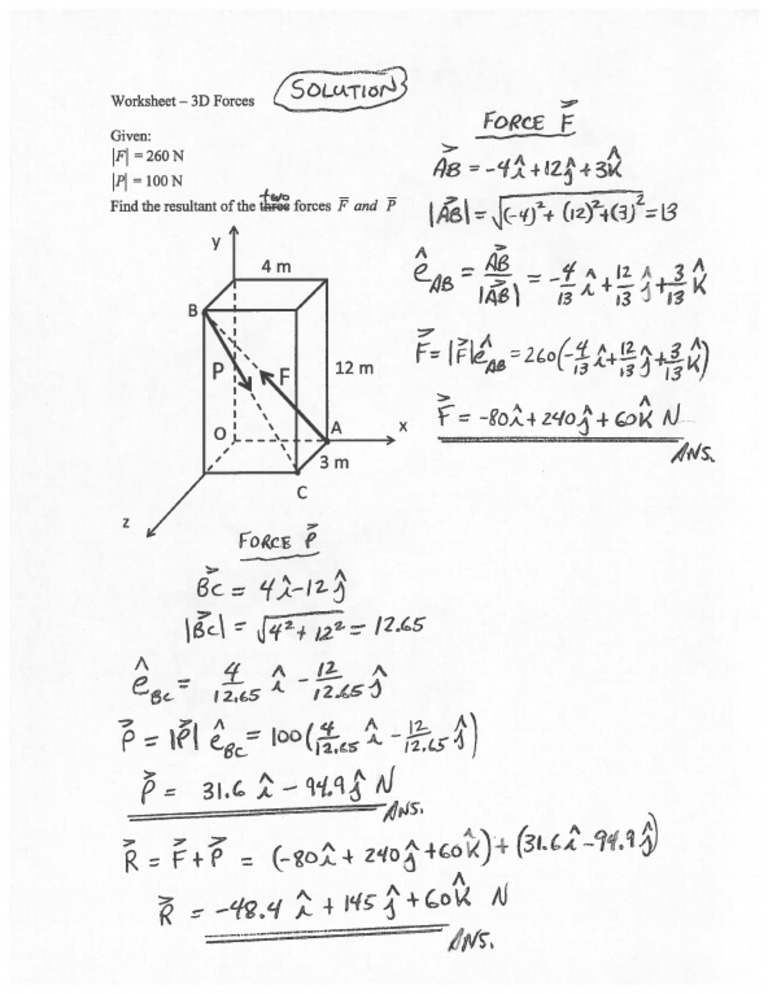 SOLUTION
Worksheet – 3D Forces
Given:
|F| = 260 N
|P| = 100 N
two
Find the resultant of the three forces F̅ and P̅
y
4 m
B
P
F
12 m
O
A
x
3 m
C
z
FORCE F⃗
A⃗B = -4î + 12ĵ + 3k̂
|A⃗B| = √((-4)² + (12)² + (3)²) = 13
ê_AB = A⃗B / |A⃗B| = -4/13 î + 12/13 ĵ + 3/13 k̂
F⃗ = |F⃗| ê_AB = 260(-4/13 î + 12/13 ĵ + 3/13 k̂)
F⃗ = -80î + 240ĵ + 60k̂ N
ANS.
FORCE P⃗
B⃗C = 4î - 12ĵ
|B⃗C| = √(4² + 12²) = 12.65
ê_BC = 4/12.65 î - 12/12.65 ĵ
P⃗ = |P⃗| ê_BC = 100(4/12.65 î - 12/12.65 ĵ)
P⃗ = 31.6 î - 94.9 ĵ N
ANS.
R⃗ = F⃗ + P⃗ = (-80î + 240ĵ + 60k̂) + (31.6î - 94.9ĵ)
R⃗ = -48.4 î + 145 ĵ + 60k̂ N
ANS.